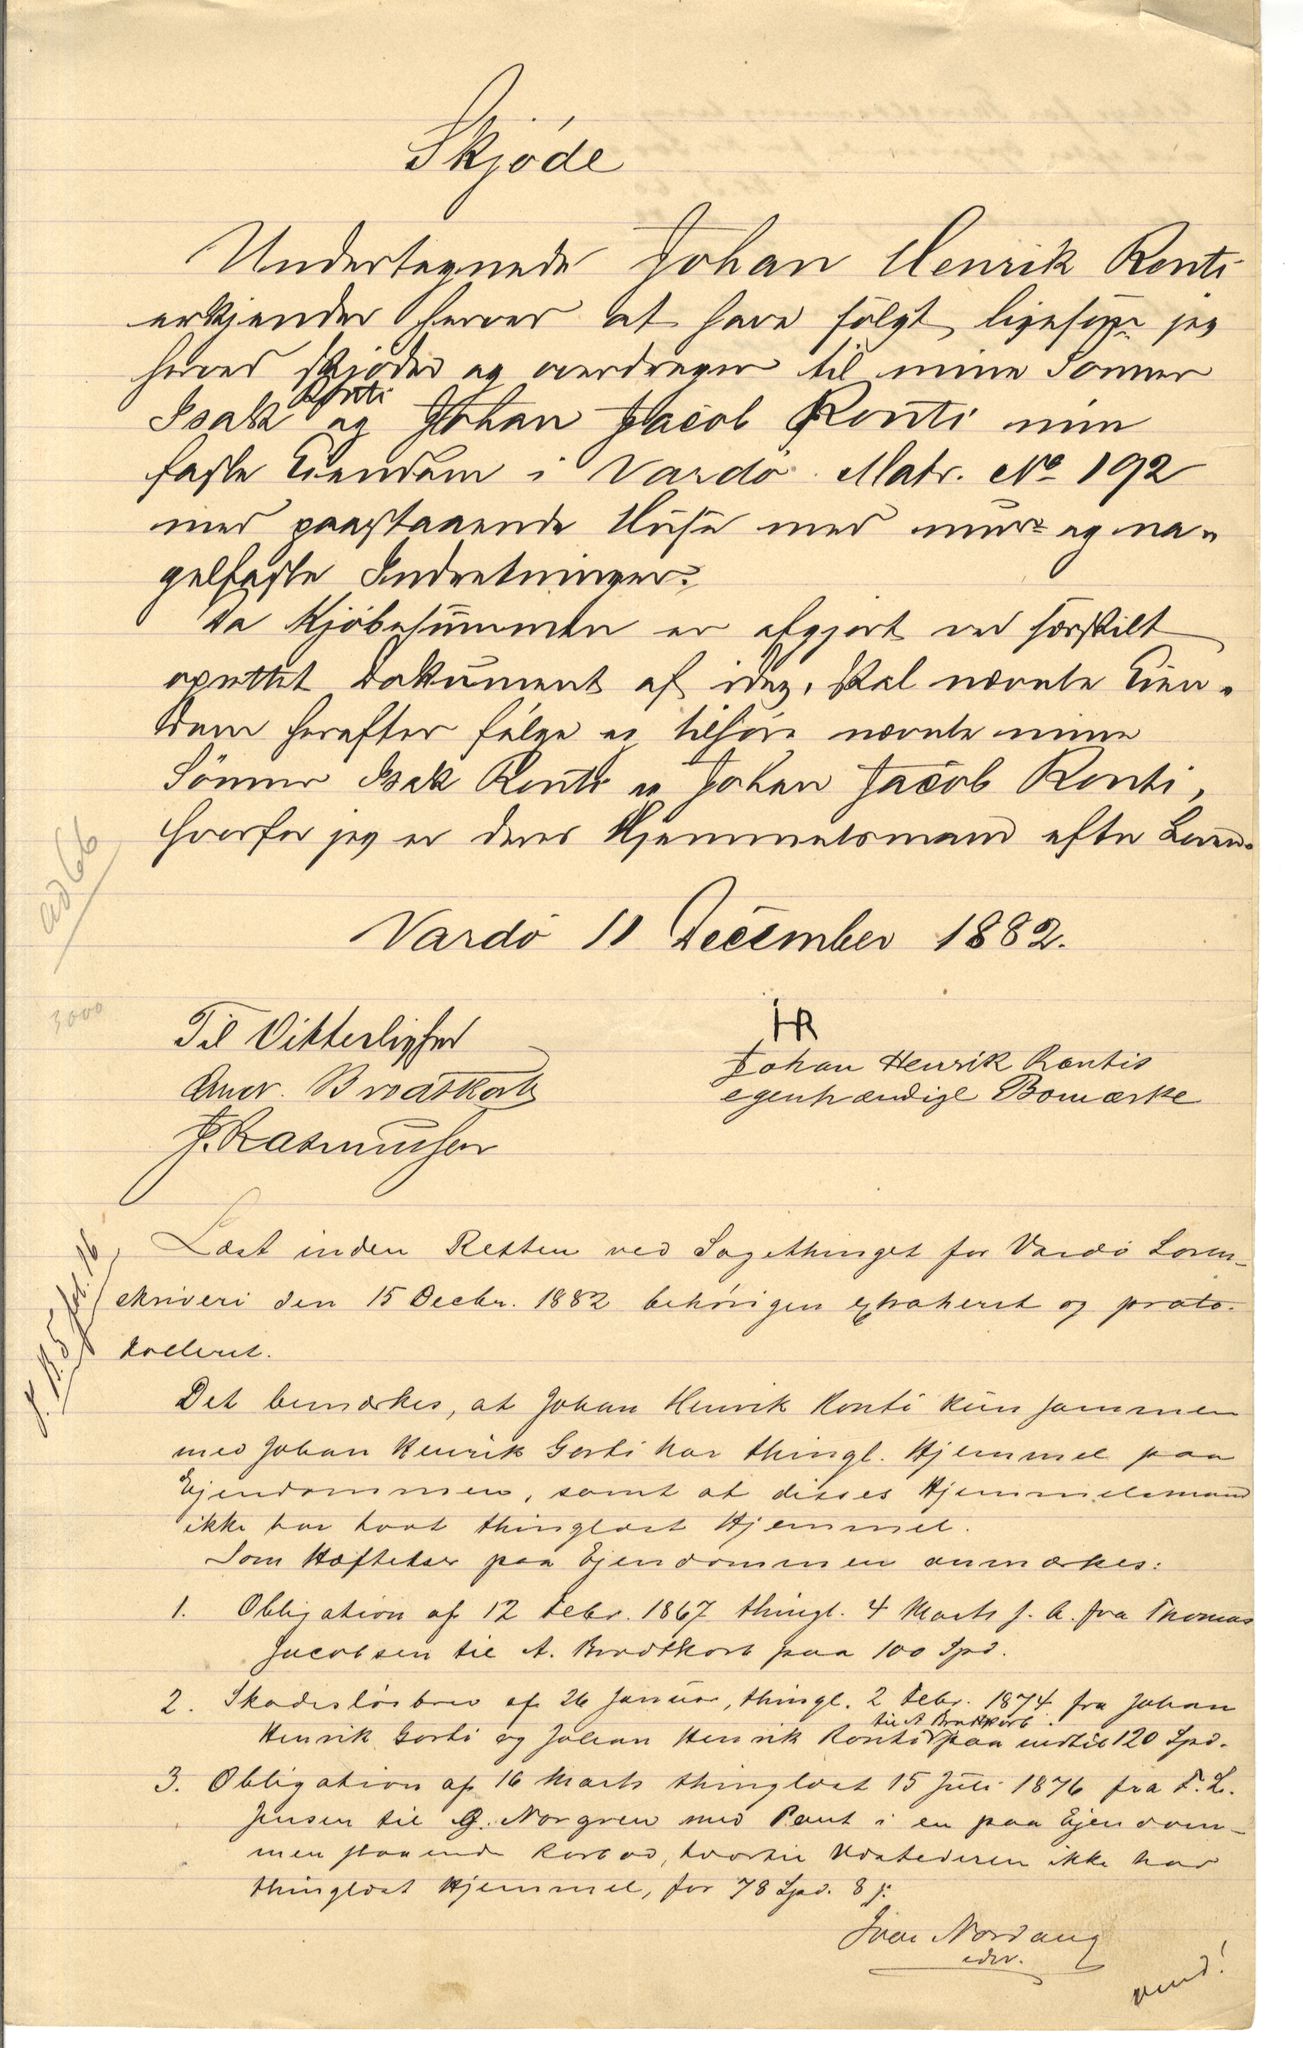 Skjøde
Undertegnede Johan Henrik Ronti
erkjender herved at have solgt, ligesom jeg
herved skjøder og overdrager til mine Sønner
Isak Ronti og Johan Jacob Ronti min
faste Eiendom i Vardø Matr. No 192
med paastaaende Huse med mur= og na=
gelfaste Indretninger.
Da Kjøbesummen er afgjort ved særskilt
oprettet Dokument af idag, skal nævnte Eien=
dom herefter følge og tilhøre nævnte mine
Sönner Isak Ronti og Johan Jacob Ronti,
hvorfor jeg er deres Hjemmelsmand efter Loven.
Vardö 11 December 1882.
ad 66
3000
Til Vitterlighed
Andr. Brodtkorb
J. Rasmussen
HR
Johan Henrik Rontis
egenhændige Bomærke
Læst inden Retten ved Sagethinget for Vardø Soren=
skriveri den 15 Decbr. 1882 behørigen extraheret og proto=
kolleret.
P. B. 5 fol. 16
Det bemærkes, at Johan Henrik Ronti kun sammen
med Johan Henrik Gorti har thingl. Hjemmel paa
Ejendommen, samt at disses Hjemmelsmand
ikke har havt thinglæst Hjemmel.
Som Hæftelser paa Ejendommen anmærkes:
1. Obligation af 12 Febr. 1867 thingl. 4 Marts s. A. fra Thomas
Jacobsen til A. Brodtkorb paa 100 Spd.
2. Skadesløsbrev af 26 Januar, thingl. 2 Febr. 1874 fra Johan
Henrik Gorti og Johan Henrik Ronti til A Brodtkorb paa indtil 120 Spd.
3. Obligation af 16 Marts thinglæst 15 Juli 1876 fra F. L.
Jensen til G. Norgren med Pant i en paa Ejendom=
men staaende Korbod, hvortil Udstederen ikke har
thinglæst Hjemmel, for 78 Spd. 8 s.
Ivar Nordang
edsv.
vend!